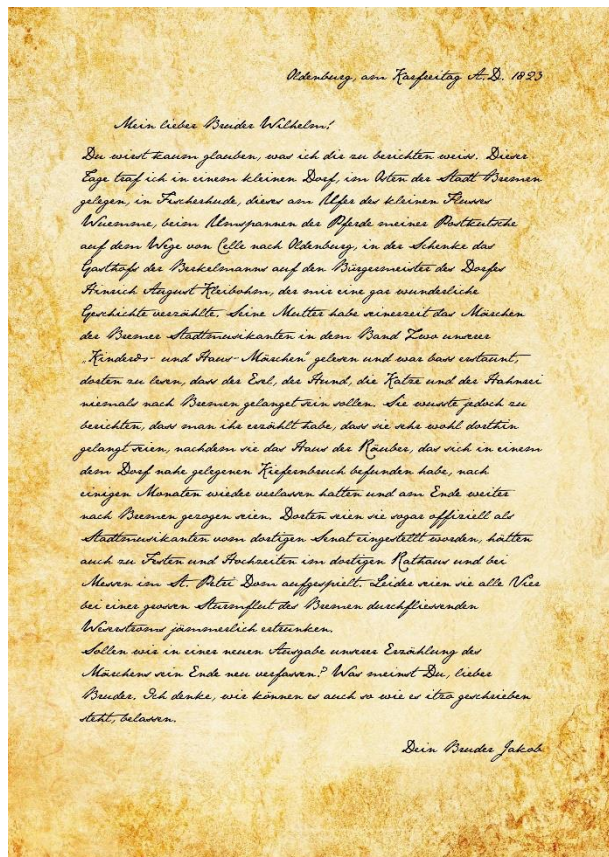 Oldenburg, am Karfreitag A.D. 1823
Mein lieber Bruder Wilhelm!
Du wirst kaum glauben, was ich dir zu berichten weiss. Dieser
Tage traf ich in einem kleinen Dorf, im Osten der Stadt Bremen
gelegen, in Fischerhude, dieses am Ufer des kleinen Flusses
Wuemme, beim Umspannen der Pferde meiner Postkutsche
auf dem Wege von Celle nach Oldenburg, in der Schenke das
Gasthofs der Berkelmanns auf den Bürgermeister des Dorfes
Hinrich August Kleibohm, der mir eine gar wunderliche
Geschichte verzählte. Seine Mutter habe seinerzeit das Märchen
der Bremer Stadtmusikanten in dem Band Zwo unserer
„Kinder- und Haus-Märchen" gelesen und war bass erstaunt,
dorten zu lesen, dass der Esel, der Hund, die Katze und der Hahn
niemals nach Bremen gelanget sein sollen. Sie wusste jedoch zu
berichten, dass man ihr erzählt habe, dass sie sehr wohl dorthin
gelangt seien, nachdem sie das Haus der Räuber, das sich in einem
dem Dorf nahe gelegenen Kiefernbruch befunden habe, nach
einigen Monaten wieder verlassen hatten und am Ende weiter
nach Bremen gezogen seien. Dorten seien sie sogar offiziell als
Stadtmusikanten vom dortigen Senat eingestellt worden, hätten
auch zu Festen und Hochzeiten im dortigen Rathaus und bei
Messen im St. Petri Dom aufgespielt. Leider seien sie alle Vier
bei einer grossen Sturmflut des Bremen durchfliessenden
Weserstroms jämmerlich ertrunken.
Sollen wir in einer neuen Ausgabe unserer Erzählung des
Märchens sein Ende neu verfassen? Was meinst Du, lieber
Bruder. Ich denke, wir können es auch so wie es itzo geschrieben
steht, belassen.
Dein Bruder Jakob